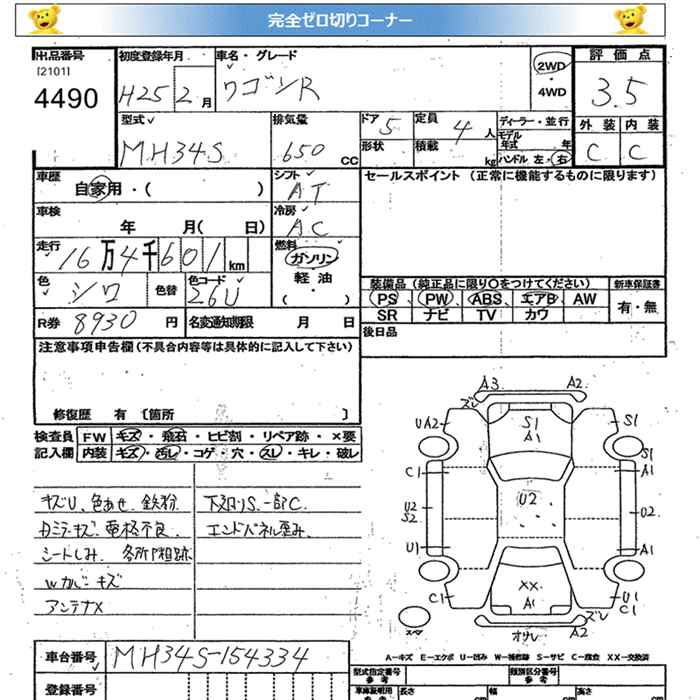 完全ゼロ切りコーナー
出品番号 初度登録年月 車名・グレード 2WD 評価点
[2101] 4WD
4490 H25 2月 ワゴンR 3.5
型式 排気量 ドア 5 定員 4人 ディーラー・並行 外装 内装
MH34S 650 CC 形状 積載 kg モデル年式 年 C C
ハンドル 左・右
車歴 自家用・( ) シフト AT セールスポイント (正常に機能するものに限ります)
車検 年 月( 日) 冷房 AC
走行 16万4千601km 燃料 ガソリン
軽油
・( )
色 シロ 色替 色コード 26U
装備品 (純正品に限り○をつけてください) 新車保証書
PS PW ABS エアB AW 有・無
SR ナビ TV カワ
R券 8930円 名変通知期限 月 日 後日品
注意事項申告欄(不具合内容等は具体的に記入して下さい)
修復歴 有 [箇所 ]
検査員 FW キズ・飛石・ヒビ割・リペア跡・×要
記入欄 内装 キズ・汚レ・コゲ・穴・スレ・キレ・破レ
キズU、色あせ、鉄粉 下回りS、一部C
電格不良 エンドパネル歪み
シートしみ、各所P粗跡
Wカバーキズ
アンテナX
A3 A2
ズレ
UA2 S1 S1
A1
S1
C1 A1
U2 U2 U2
S2
U1 A1
XX
C1 A1 U1
C1
ズレ
スペア オサレ A2
A-キズ E-エクボ U-凹み W-補修跡 S-サビ C-腐食 XX-交換済
車台番号 MH34S-154334
型式指定番号 参考 類別区分番号 参考
登録番号 車庫証明用 参考 長さ cm 幅 cm 高さ cm